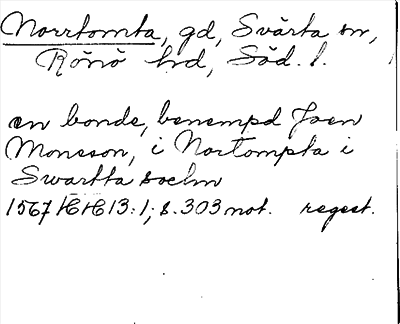 Norrtomta, gd, Svärta sn,
Rönö hd, Söd. l.
en bonde, benempd Joen
Monsson, i Nortompta i
Swartta sochn
1567 HH 13:1; s. 303 not. regest.